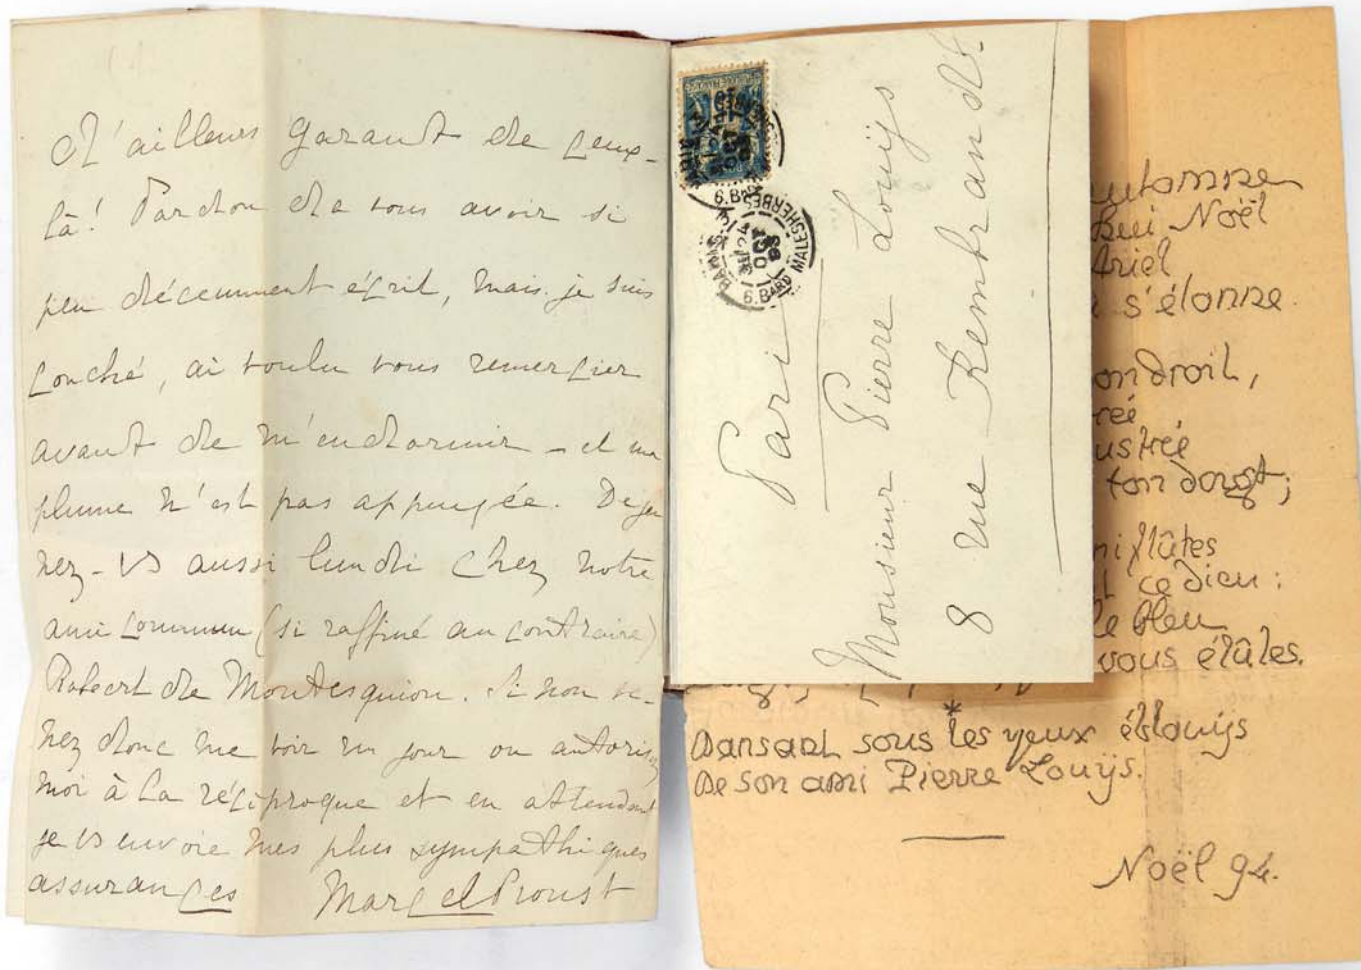 d'ailleurs garant de ceux-
là! Pardon de vous avoir si
peu décemment écrit, mais je suis
couché, ai voulu vous remercier
avant de m'endormir - et ma
plume n'est pas appuyée. Déjeu
nez-vs aussi lundi chez notre
ami commun (si raffiné au contraire)
Robert de Montesquiou. Si non ve-
nez donc me voir un jour ou autorisez
moi à la réciproque et en attendant
je vs envoie mes plus sympathiques
assurances Marcel Proust
Paris
Monsieur Pierre Louijs
8 rue Rembrandt
MALESHERBES
utomne
Noël
Ariel
s'étonne.
ondroit,
rée
ustrée
ton doigt;
ni flûtes
ce dieu:
le bleu
vous étâtes.
*
Dansant sous les yeux éblouijs
De son ami Pierre Louÿs.
Noël 94.